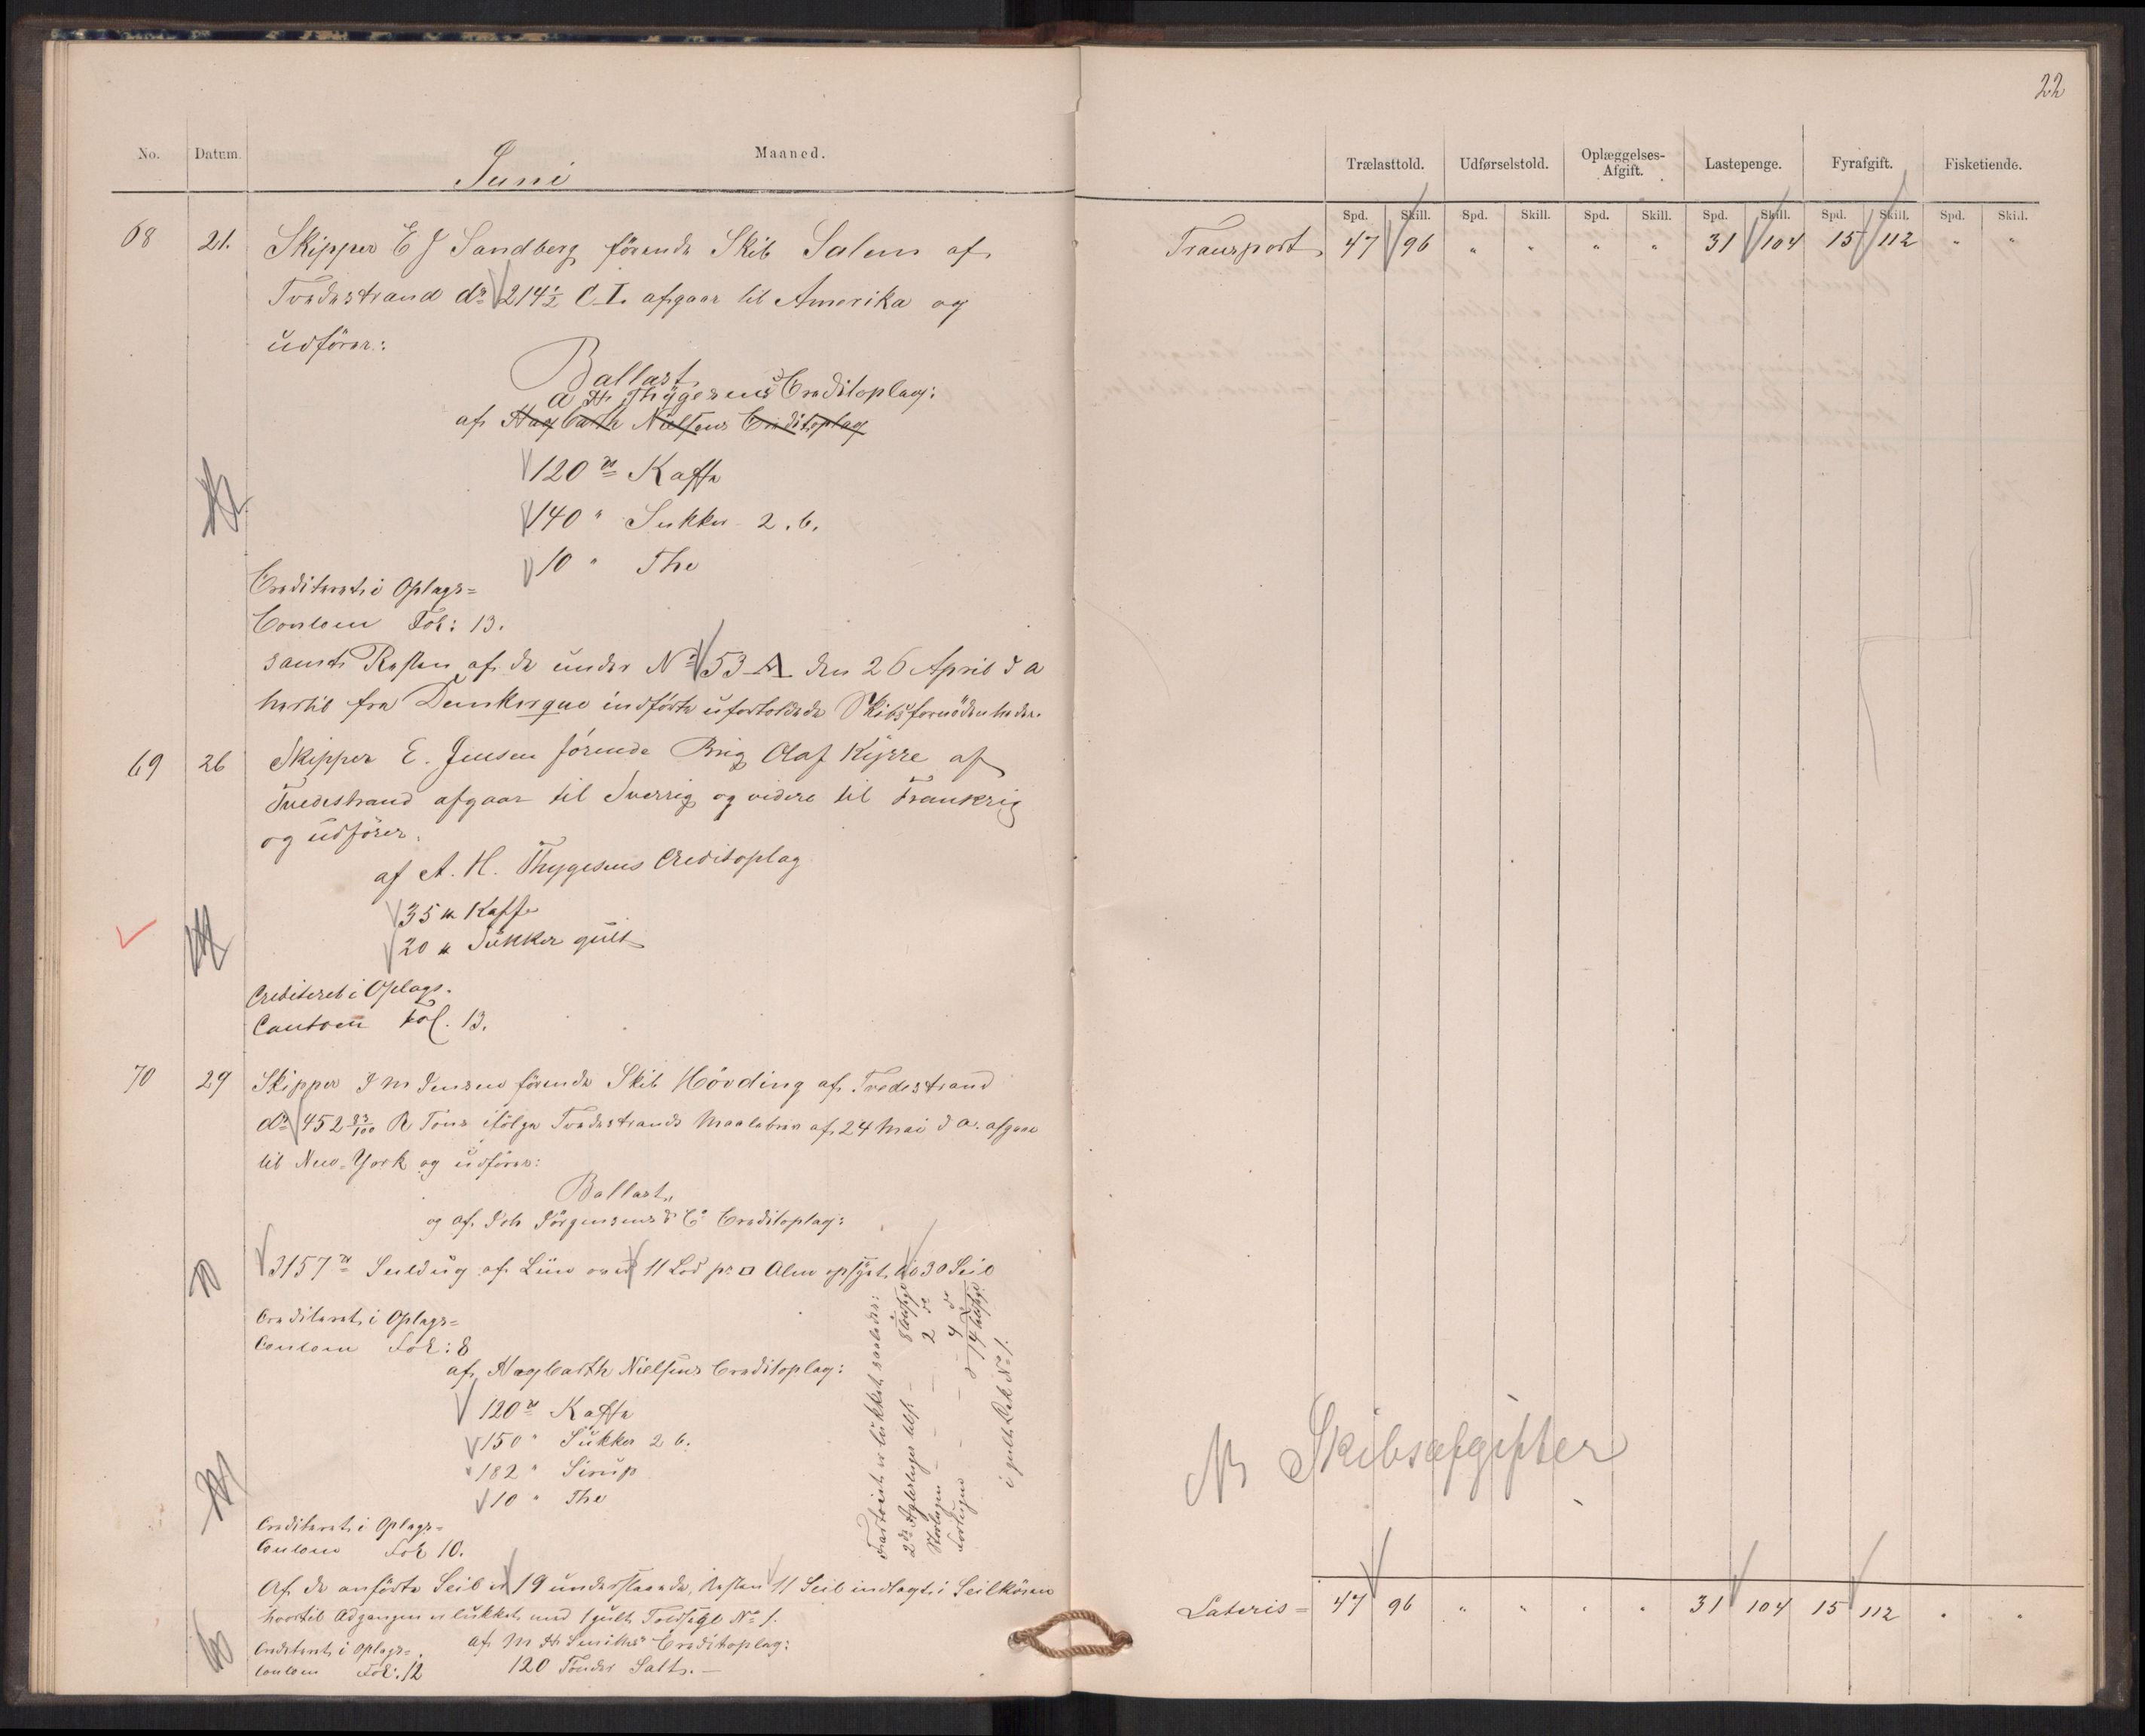 No. Datum. Juni Maaned.
68 21. Skipper E J Sandberg förende Skib Salem af
Tvedestrand dr. 214½ C.L. afgaar til Amerika og
udförer:
Ballast,
A H Thygesens Creditoplag:
af Hagbarth Nielsens Creditoplag
120 ℔ Kaffe
140 " Sukker 2. b.
10 " The
Crediteret i Oplags=
Contoen Fol: 13.
samt Resten af de under No 53 A den 26 April d a
hertil fra Dunkerque indförte ufortoldede Skibsfornödenheder.
69 26 Skipper E. Jensen förende Brig Olaf Kyrre af
Tvedestrand afgaar til Sverrig og videre til Frankrig
og udförer.
af A. H. Thygesens Creditoplag
35 ℔ Kaffe
20 ℔ Sukker gült
Crediteret i Oplags.
Contoen Fol. 13.
70 29 Skipper J M Jensen förende Skib Hövding af Tvedestrand
dr. 452 83/100 R Tons ifölge Tvedestrands Maalebrev af 24 Mai d a. afgaar
til New-York og udförer:
Ballast,
og af Joh Jörgensens & Co Creditoplag:
3157 ℔ Seildug af Liin over 11 Lod pr □ Alen opsyet til 30 Seil
Crediteret i Oplags=
Contoen Fol: 8
af Hagbarth Nielsens Creditoplag:
120 ℔ Kaffe
150 " Sukker 2 b.
182 " Sirup
10 " The
Crediteret i Oplags=
Contoen Fol 10.
Fartöiet er lukket saaledes:
2de Agterluger
Storlugen - - 2 do
Forlugen - - 4 do
i gult Lak No 1.
Af de anförte Seil er 19 understaaende, Resten 11 Seil indlagt i Seilköien
hvortil Adgangen er lukket med 1 gult Toldsegl No 1.
Crediteret i Oplags=. af M H Smiths Creditoplag:
Contoen Fol: 12 120 Tönder Salt. —
22
Trælasttold. Udførselstold. Oplæggelses-Afgift. Lastepenge. Fyrafgift. Fisketiende.
Spd. Skill. Spd. Skill. Spd. Skill. Spd. Skill. Spd. Skill. Spd. Skill.
Transport 47 96 " " " " 31 104 15 112 " "
Skibsafgifter
Lateris = 47 96 " " " " 31 104 15 112 " "